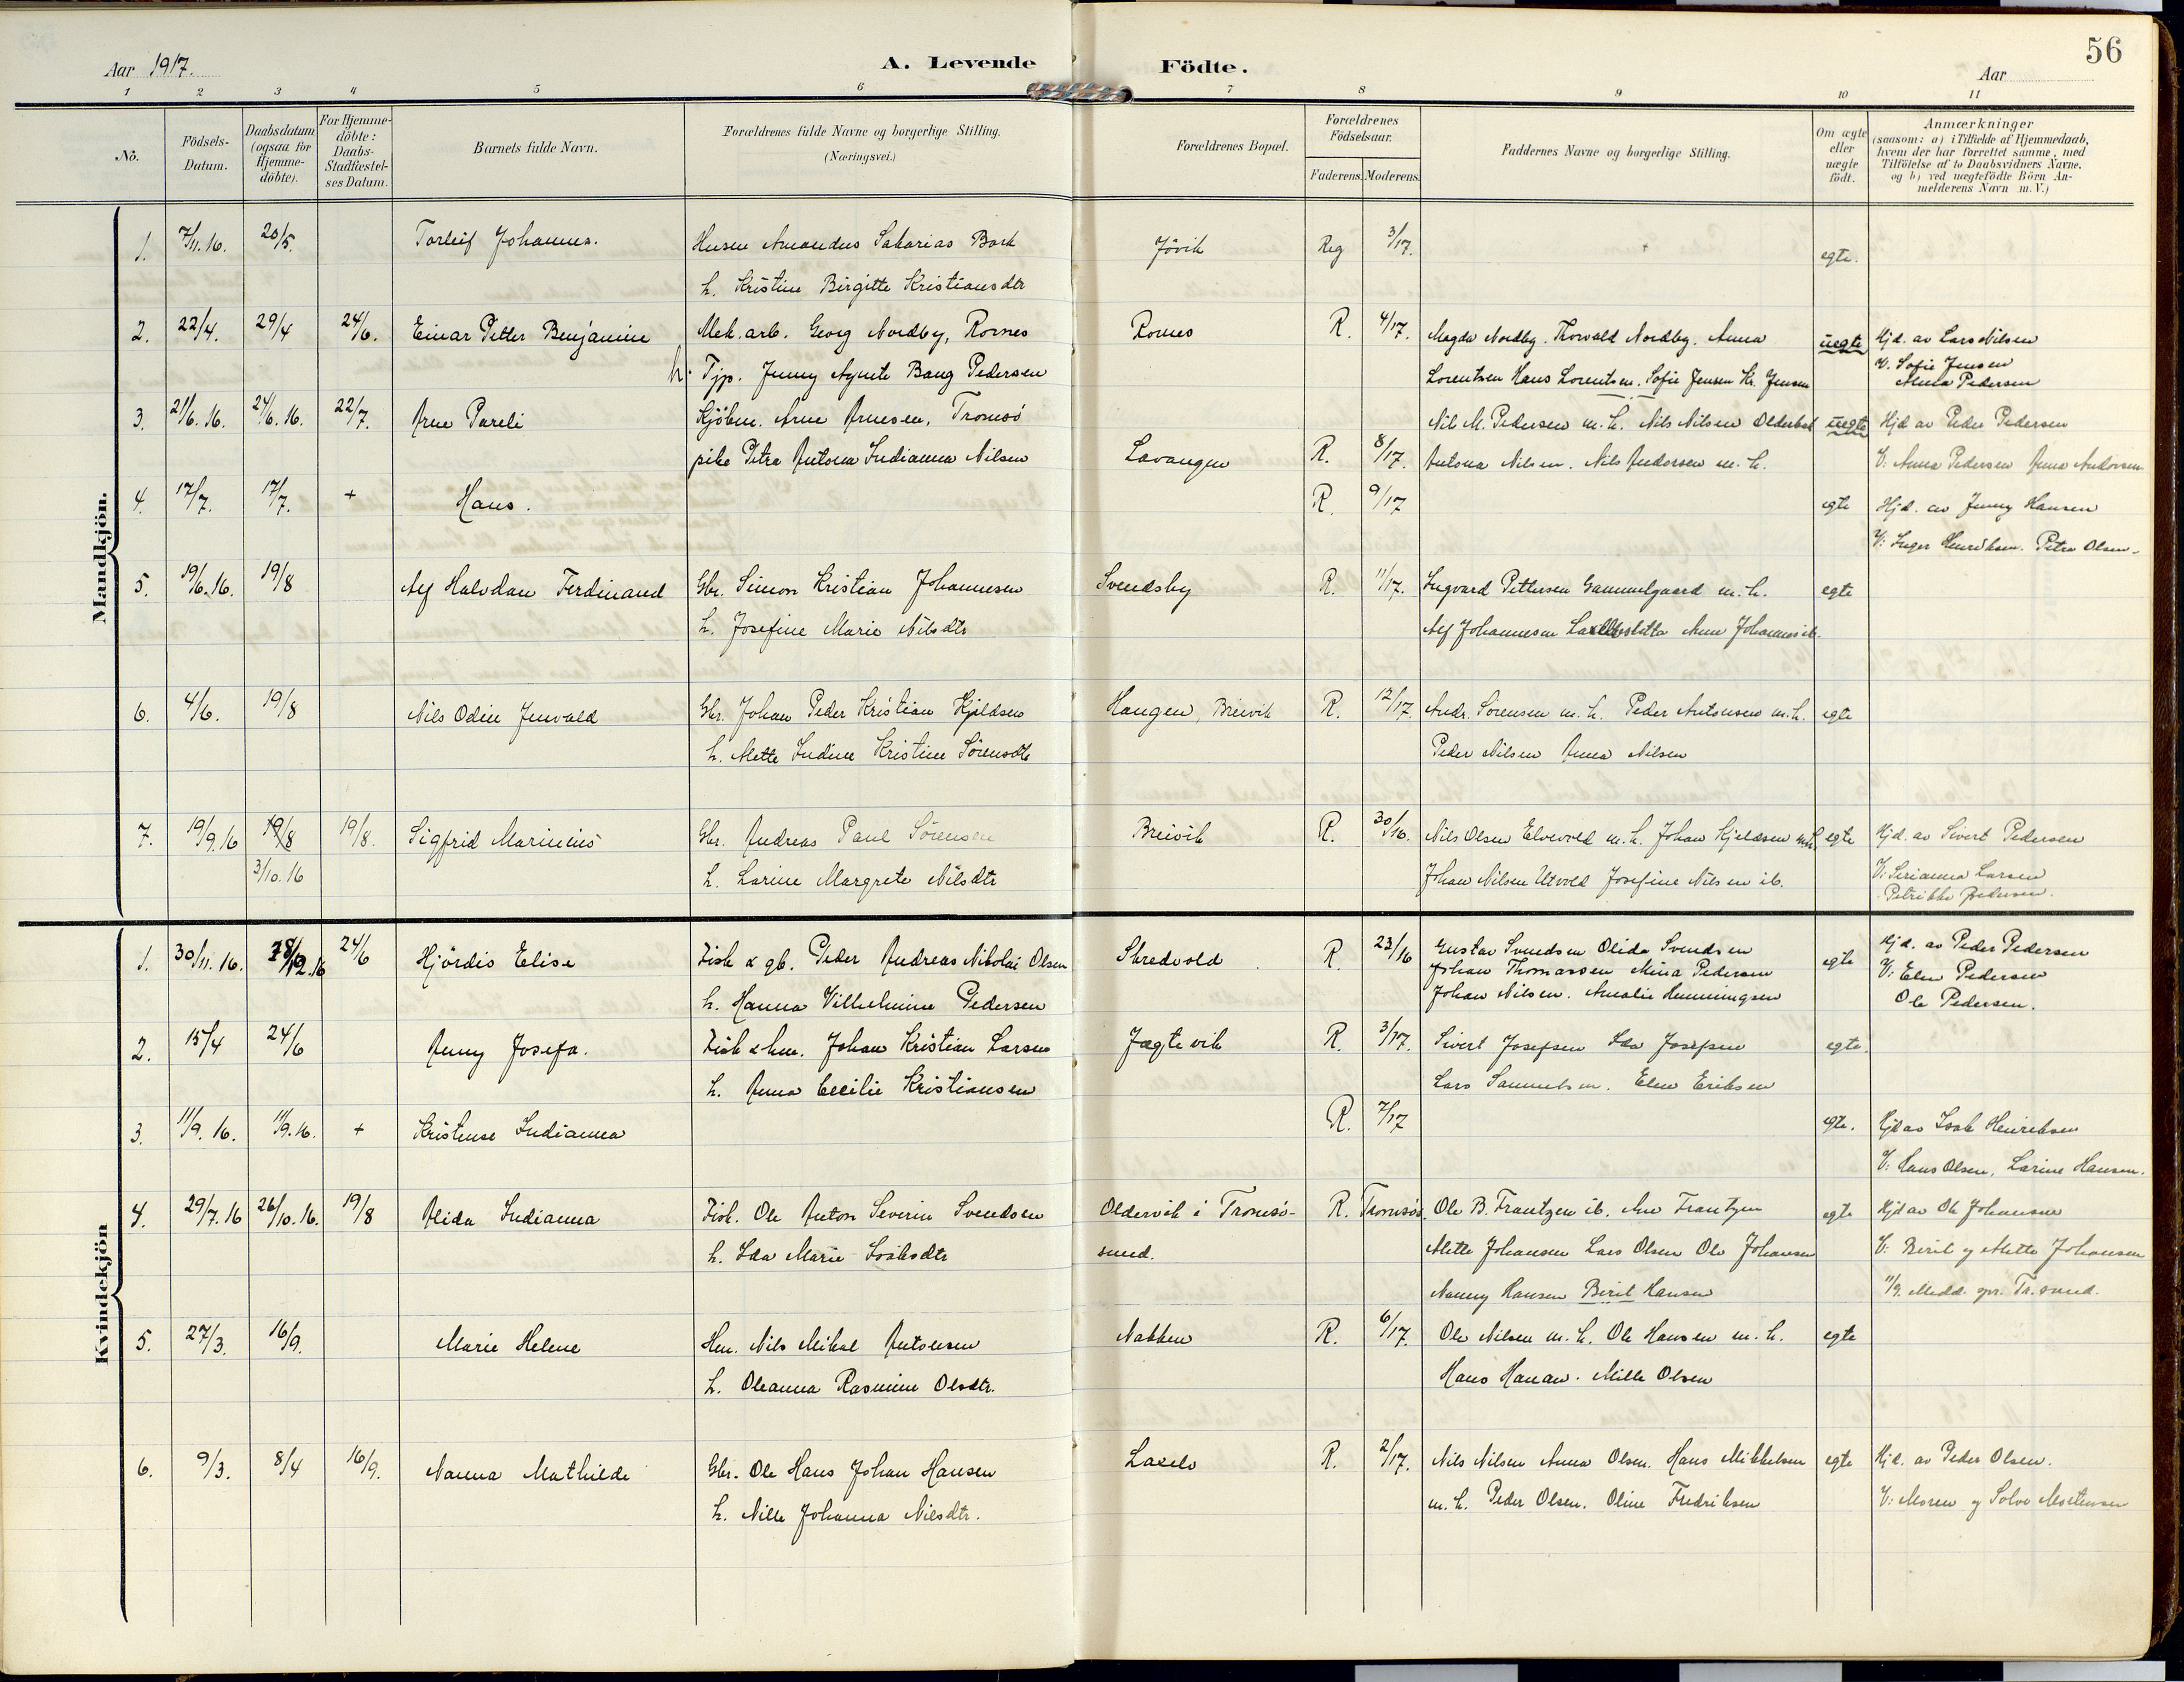 Aar 1917.
A. Levende Födte.
Aar
56
1 2 3 4 5 6 7 8 9 10 11
No.
Födsels-Datum.
Daabsdatum (ogsaa for Hjemme-döbte).
For Hjemme-döbte: Daabs-Stadfæstel-ses Datum.
Barnets fulde Navn.
Forældrenes fulde Navne og borgerlige Stilling.
(Næringsvei.)
Forældrenes Bopæl.
Forældrenes Födselsaar.
Faderens. Moderens.
Faddernes Navne og borgerlige Stilling.
Om ægte eller uægte födt.
Anmærkninger
(saasom: a) i Tilfælde af Hjemmedaab,
hvem der har forrettet samme, med
Tilföielse af to Daabsvidners Navne.
og b) ved uægtefödte Börn An-
melderens Navn m. V.)
Mandkjön.
1. 7/11.16. 20/5. Torleif Johannes. Husm Amandus Sakarias Bark Jövik Reg 3/17. egte.
h. Kristine Birgitte Kristiansdtr
2. 22/4. 29/4 24/6. Einar Petter Benjamin Mek.arb. Georg Nordby, Rornes Rornes R. 4/17. Magda Nordby. Thorvald Nordby. Anna uegte Hjd. av Lars Nilsen
Tjp. Jenny Agnete Bang Pedersen Lorentzen Hans Lorentsen. Sofie Jensen Kr. Jensen V. Sofie Jensen
Anna Pedersen
3. 21/6.16. 24/6.16. 22/7. Arne Pareli Kjöbm. Arne Arnesen, Tromsö Nil M. Pedersen m. h. Nils Nilsen uegte Hjd av Peder Pedersen
pike Petra Antona Indianna Nilsen Lavangen R. 8/17. Antona Nilsen. Nils Andersen m. h. V: Anna Pedersen Anna Andersen
4. 17/7. 17/7. + Hans. R. 9/17 egte Hjd. av Jenny Hansen
V: Inger Henriksen. Petra Olsen.
5. 19/6.16. 19/8 Alf Halvdan Ferdinand Gbr. Simon Kristian Johannesen Svendsby R. 11/17. Ingvard Pettersen Gammelgaard m. h. egte
h. Josefine Marie Nilsdtr Alf Johannesen Anne Johannes ib.
6. 4/6. 19/8 Nils Odin Jenvald Gbr. Johan Peder Kristian Kjeldsen Haugen, Breivik R. 12/17. Andr. Sörensen m. h. Peder Antonsen m. h. egte
h. Mette Indine Kristine Sörensdtr Peder Nilsen Anna Nilsen
7. 19/9.16 19/8 19/8. Sigfrid Marinius Gbr. Andreas Paul Sörensen Breivik R. 30/16. Nils Olsen Elvevold m. h. Johan Kjeldsen m.h. egte Hjd. av Sivert Pedersen
3/10.16 h. Larine Margrete Nilsdtr Johan Nilsen Utvold Josefine Nilsen ib. V: Serianna Larsen
Petrikke Pedersen.
Kvindekjön
1. 30/11.16. 28/12.16 24/6 Hjördis Elise Fisk & gb. Peder Andreas Nikolai Olsen Skredvold R. 23/16 Gustav Svendsen Olida Svendsen egte Hjd. av Peder Pedersen
h. Hanna Vilhelmine Pedersen Johan Thomassen Mina Pedersen V: Elen Pedersen
Johan Nilsen. Amalie Henningsen Ole Pedersen.
2. 15/4 24/6 Anny Josefa. Fisk & hm. Johan Kristian Larsen Jægtevik R. 3/17. Sivert Josefsen Ida Josefsen egte.
h. Anna Cecilie Kristiansen Lars Samuelsen. Elen Eriksen
3. 11/9.16. 11/9.16. + Kristense Indianna R. 7/17 egte. Hjd av Isak Henriksen
V: Hans Olsen, Larine Hansen.
4. 29/7.16 26/10.16. 19/8 Alida Indianna Fisk. Ole Anton Severin Svendsen Oldervik i Tromsö- R. Tromsös. Ole B. Frantzen ib. Ane Frantzen egte Hjd av Ole Johansen
h. Ida Marie Isaksdtr sund. Mette Johansen Lars Olsen Ole Johansen V: Beril og Mette Johansen
Nanny Hansen Beril Hansen 11/9. Medd. spr. Tr.sund.
5. 27/3. 16/9. Marie Helene Hm. Nils Mikal Antonsen Nakken R. 6/17. Ole Nilsen m. h. Ole Hansen m. h. egte
h. Oleanna Rasmine Olsdtr. Hans Hanan. Mille Olsen
6. 9/3. 8/4 16/9. Nanna Mathilde Gbr. Ole Hans Johan Hansen Lakselv R. 2/17. Nils Nilsen Anna Olsen. Hans Mikkelsen egte Hjd. av Peder Olsen.
h. Nille Johanna Nilsdtr. m. h. Peder Olsen. Oline Fredriksen V: Moren og Solve Mortensen